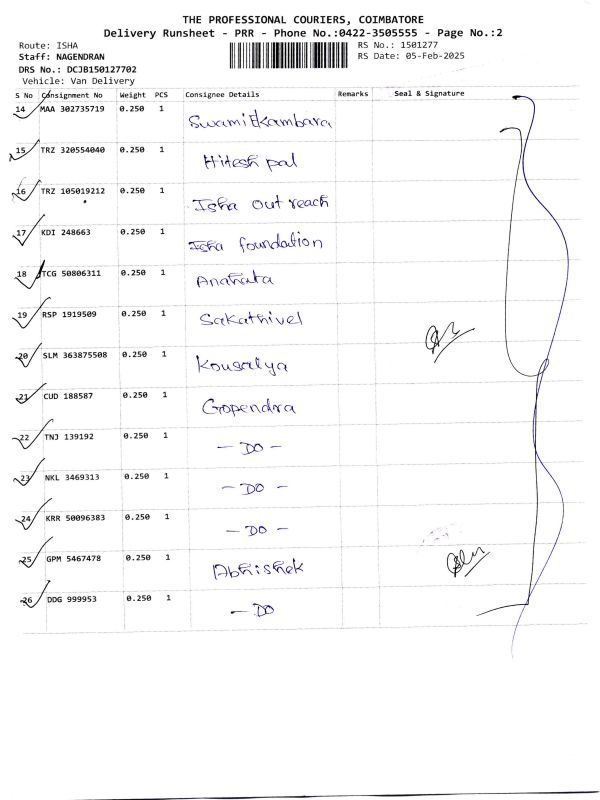 THE PROFESSIONAL COURIERS, COIMBATORE
Delivery Runsheet - PRR - Phone No.:0422-3505555 - Page No.:2
Route: ISHA RS No.: 1501277
Staff: NAGENDRAN RS Date: 05-Feb-2025
DRS No.: DCJB150127702
Vehicle: Van Delivery
S No Consignment No Weight PCS Consignee Details Remarks Seal & Signature
14 MAA 302735719 0.250 1 Swami Ekambara
15 TRZ 320554040 0.250 1 Hitesh pal
16 TRZ 105019212 0.250 1 Isha out reach
17 KDI 248663 0.250 1 Isha foundation
18 TCG 50806311 0.250 1 Anahata
19 RSP 1919509 0.250 1 Sakathivel
20 SLM 363875508 0.250 1 Kousalya
21 CUD 188587 0.250 1 Gopendra
22 TNJ 139192 0.250 1 - DO -
23 NKL 3469313 0.250 1 - DO -
24 KRR 50096383 0.250 1 - DO -
25 GPM 5467478 0.250 1 Abhishek
26 DDG 999953 0.250 1 - DO